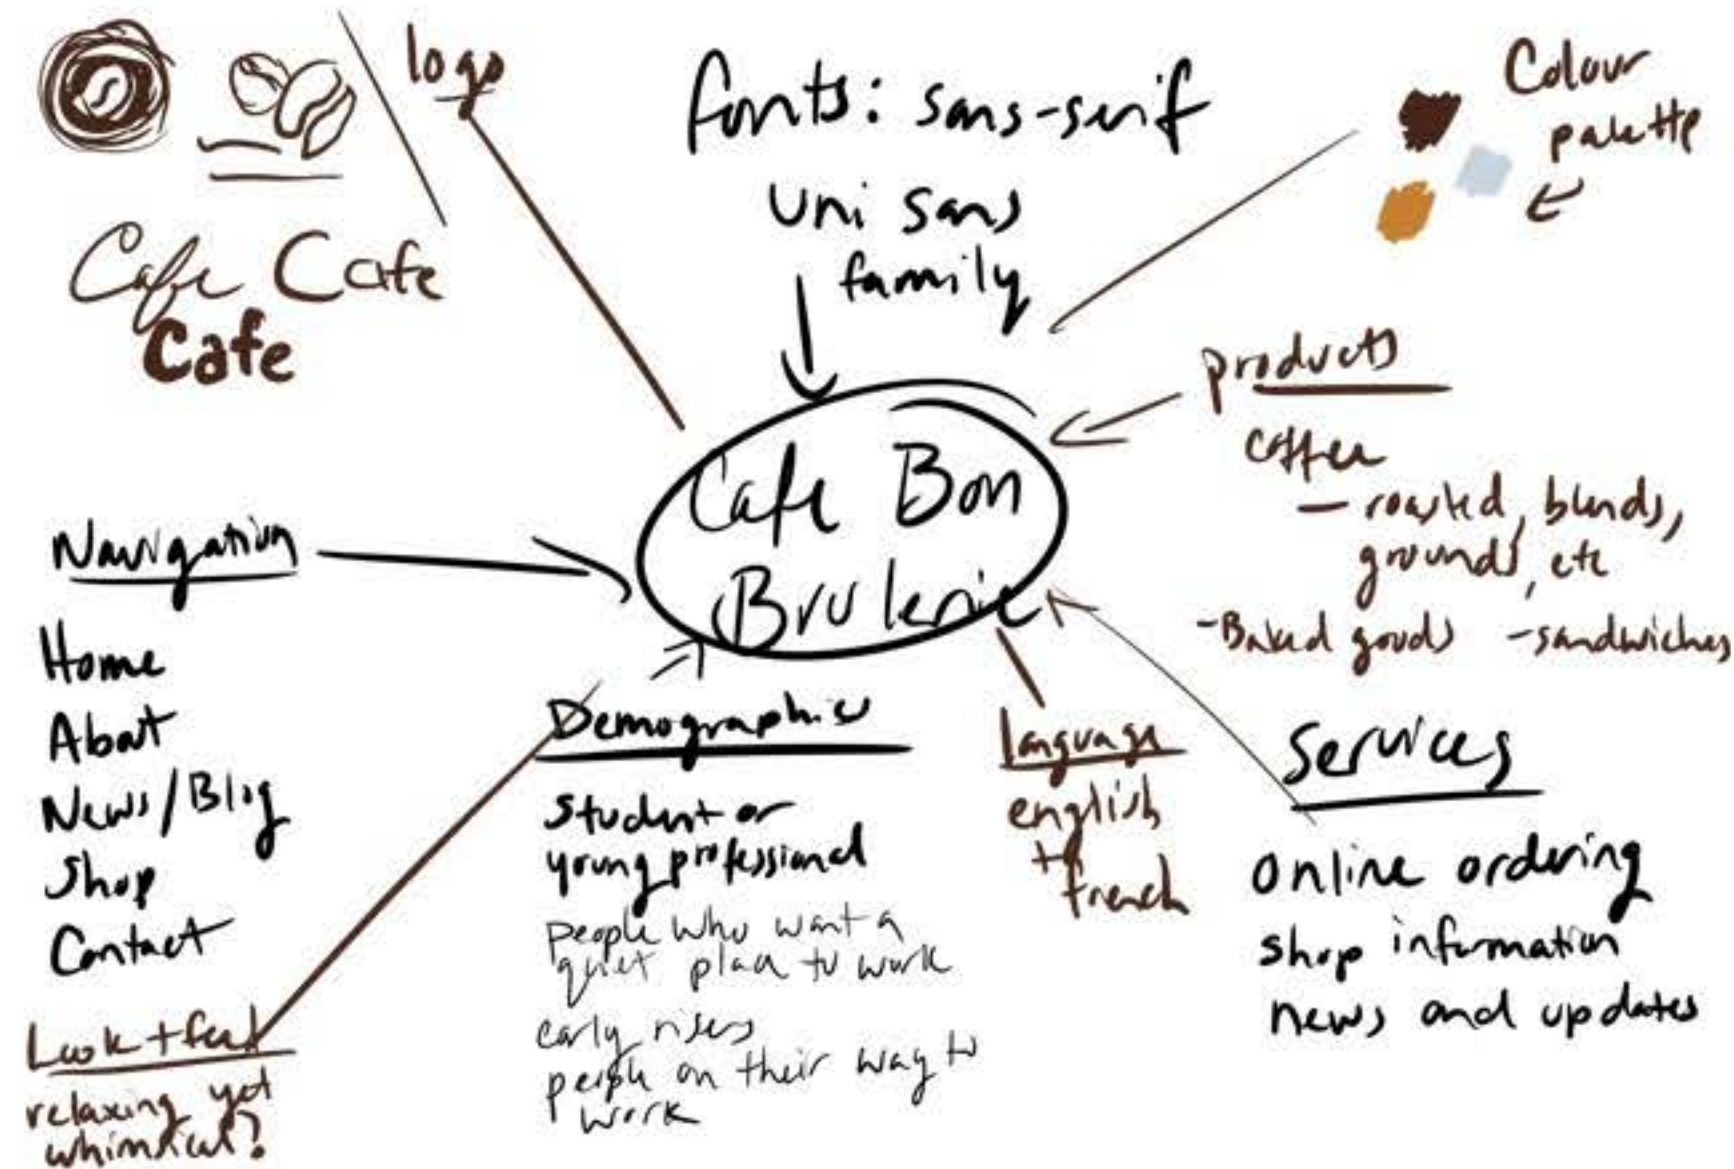 logo
Cafe Cafe
Cafe
fonts: sans-serif
Uni Sans
family
Colour
palette
products
coffee
— roasted, blends,
grounds, etc
-Baked goods -sandwiches
Cafe Bon
Brulerie
Navigation
Home
About
News/Blog
Shop
Contact
Look + feel
relaxing yet
whimsical?
Demographics
Student or
young professional
people who want a
quiet place to work
early risers
people on their way to
work
language
english
+
french
Services
online ordering
shop information
news and updates